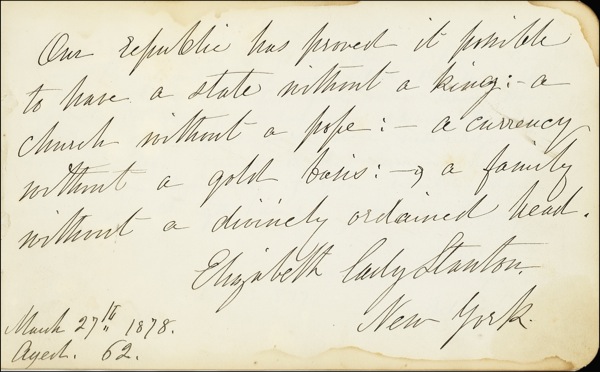 Our republic has proved it possible
to have a state without a king:– a
church without a pope:– a currency
without a gold basis:– & a family
without a divinely ordained head.
Elizabeth Cady Stanton.
New York.
March 27th 1878.
Aged. 62.